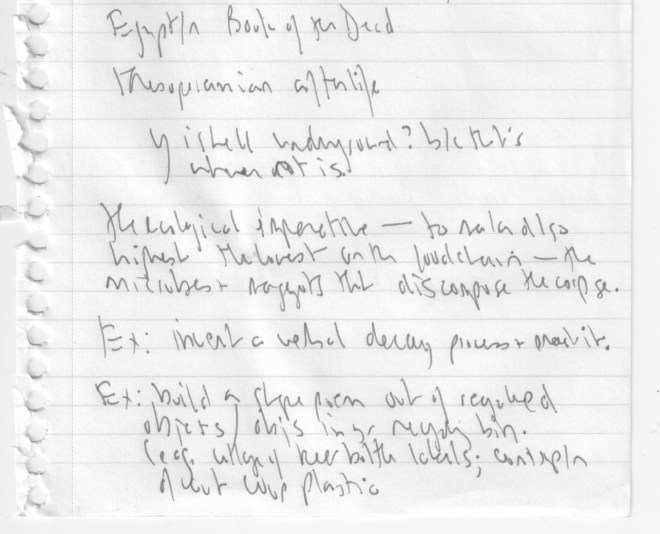 Egyptn Book of the Dead
Mesopotamian afterlife
y is hell underground? b/c that's
where rot is.
The ecological imperative — to
highest the lowest on the foodchain — the
microbes + maggots that discompose the corpse.
Ex: invent a verbal decay process + enact it.
Ex: build a shape poem out of recycled
objects / objs in yr recycling bin.
(e.g. collage of beer bottle labels;
out plastic